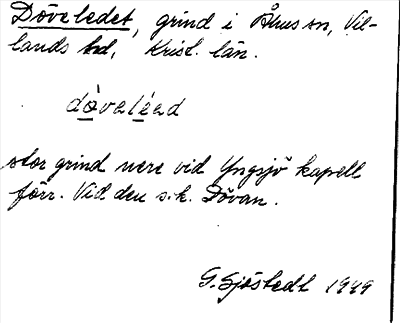 Döveledet, grind i Åhus sn, Vil-
lands hd, Krist. län.
dòveléad
stor grind nere vid Yngsjö kapell
förr. Vid den s.k. Dövan.
G. Sjöstedt 1949